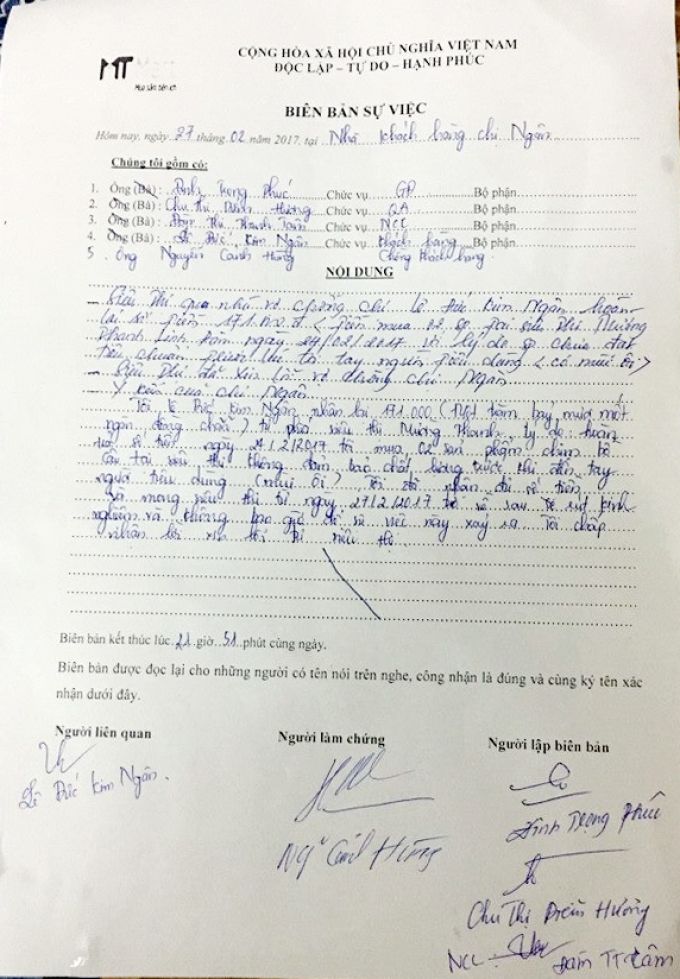 MT
Mua sắm tiện ích
CỘNG HÒA XÃ HỘI CHỦ NGHĨA VIỆT NAM
ĐỘC LẬP – TỰ DO – HẠNH PHÚC
BIÊN BẢN SỰ VIỆC
Hôm nay, ngày 27 tháng 02 năm 2017, tại Nhà khách hàng chị Ngân
Chúng tôi gồm có:
1. Ông (Bà) : Đinh Trọng Phúc Chức vụ GĐ Bộ phận
2. Ông (Bà) : Chu Thị Diễm Hương Chức vụ QA Bộ phận
3. Ông (Bà) : Đàm Thị Thanh Tâm Chức vụ NCC Bộ phận
4. Ông (Bà) : Lê Đức Kim Ngân Chức vụ Khách hàng Bộ phận
5. Ông Nguyễn Canh Hưng Chồng khách hàng
NỘI DUNG
- Siêu thị qua nhà vợ chồng chị Lê Đức Kim Ngân hoàn
lại số tiền 171.000 đ < tiền mua 02 sp tại siêu thị Mường
Thanh Linh Đàm ngày 24/02/2017 vì lý do sp chưa đạt
tiêu chuẩn trước khi tới tay người tiêu dùng < có mùi ôi >
- Siêu thị đã xin lỗi vợ chồng chị Ngân
- Ý kiến của chị Ngân
Tôi Lê Đức Kim Ngân nhận lại 171.000 (Một trăm bảy mươi mốt
ngàn đồng chẵn) từ phía siêu thị Mường Thanh. Lý do: hoàn
số tiền ngày 24/2/2017 tôi mua 02 sản phẩm
tại siêu thị không đảm bảo chất lượng trước khi đến tay
người tiêu dùng (mùi ôi). Tôi đã nhận đủ số tiền
và mong siêu thị từ ngày 27/2/2017 trở về sau sẽ rút kinh
nghiệm và không bao giờ để sự việc này xảy ra. Tôi chấp
nhận lời xin lỗi từ siêu thị.
Biên bản kết thúc lúc 21 giờ 51 phút cùng ngày.
Biên bản được đọc lại cho những người có tên nói trên nghe, công nhận là đúng và cùng ký tên xác
nhận dưới đây.
Người liên quan Người làm chứng Người lập biên bản
Lê Đức Kim Ngân.
Ng~ Canh Hưng
Đinh Trọng Phúc
Chu Thị Diễm Hương
NCC Đàm TT Tâm